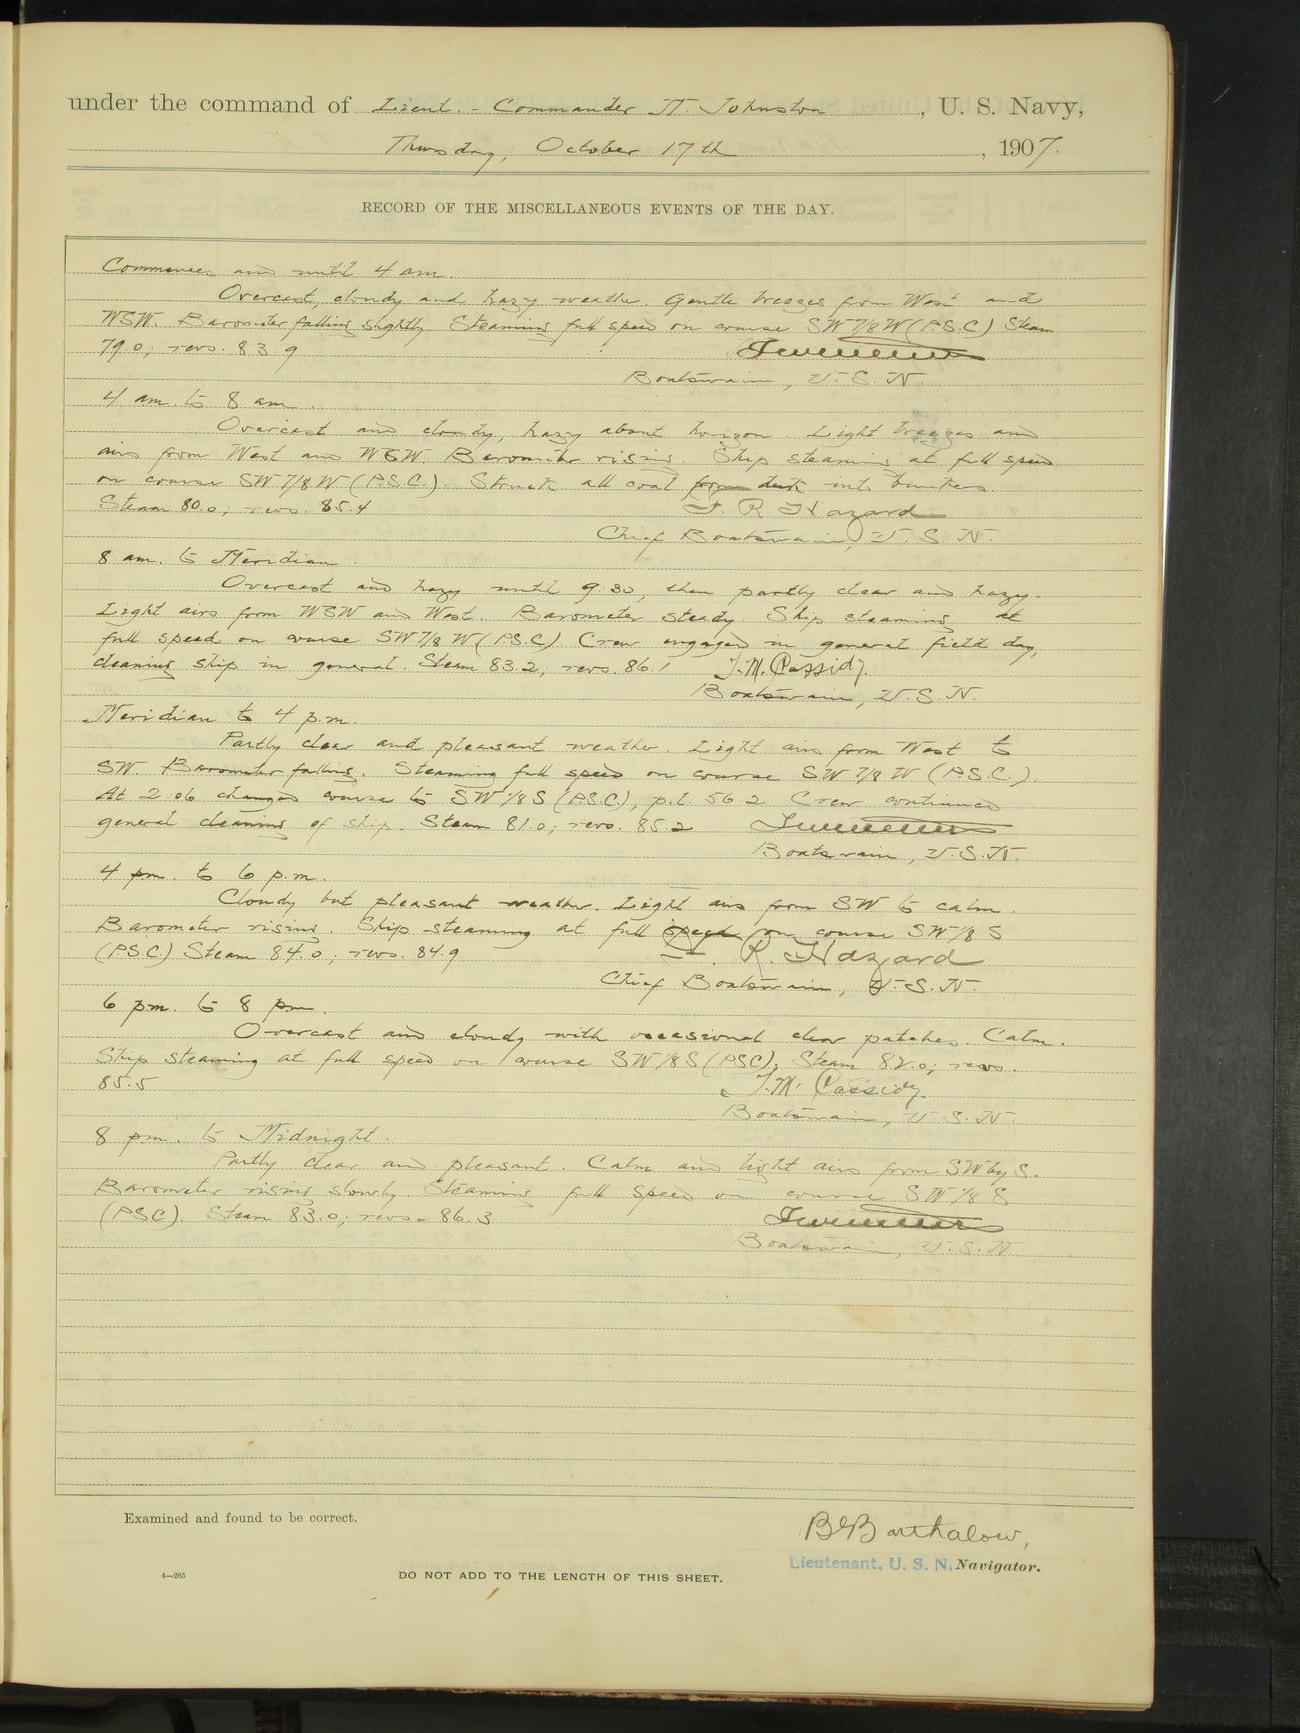 under the command of Lieut.-Commander M. Johnston, U. S. Navy,
Thursday, October 17th, 1907.
RECORD OF THE MISCELLANEOUS EVENTS OF THE DAY.
Commences and until 4 am.
Overcast, cloudy and hazy weather. Gentle breezes from West and
WSW. Barometer falling slightly. Steaming full speed on course SW 7/8 W (P.S.C.) Steam
79.0; revs. 83.9
Boatswain, U. S. N.
4 am. to 8 am.
Overcast and cloudy, hazy about horizon. Light breezes and
airs from West and WSW. Barometer rising. Ship steaming at full speed
on course SW 7/8 W (P.S.C.). Struck all coal from deck into bunkers.
Steam 80.0; revs. 85.4 F. R. Hazard
Chief Boatswain, U. S. N.
8 am. to Meridian.
Overcast and hazy until 9:30, then partly clear and hazy.
Light airs from WSW and West. Barometer steady. Ship steaming at
full speed on course SW 7/8 W (P.S.C) Crew engaged in general field day,
cleaning ship in general. Steam 83.2; revs. 86.1 T. M. Cassidy.
Boatswain, U. S. N.
Meridian to 4 p.m.
Partly clear and pleasant weather. Light airs from West to
SW. Barometer falling. Steaming full speed on course SW 7/8 W (P.S.C.)
At 2.06 changed course to SW 1/8 S (P.S.C.), p.l. 56.2 Crew continued
general cleaning of ship. Steam 81.0; revs. 85.2
Boatswain, U. S. N.
4 pm. to 6 p.m.
Cloudy but pleasant weather. Light airs from SW to calm.
Barometer rising. Ship steaming at full speed on course SW 1/8 S
(P.S.C.) Steam 84.0; revs. 84.9 F. R. Hazard
Chief Boatswain, U. S. N.
6 pm. to 8 pm.
Overcast and cloudy with occasional clear patches. Calm.
Ship steaming at full speed on course SW 1/8 S (P.S.C). Steam 82.0; revs.
85.5 T. M. Cassidy
Boatswain, U. S. N.
8 pm. to Midnight.
Partly clear and pleasant. Calm and light airs from SW by S.
Barometer rising slowly. Steaming full speed on course SW 1/8 S
(P.S.C). Steam 83.0; revs. 86.3
Boatswain, U. S. N.
Examined and found to be correct.
Barthalow,
Lieutenant, U. S. N. Navigator.
4—265
DO NOT ADD TO THE LENGTH OF THIS SHEET.